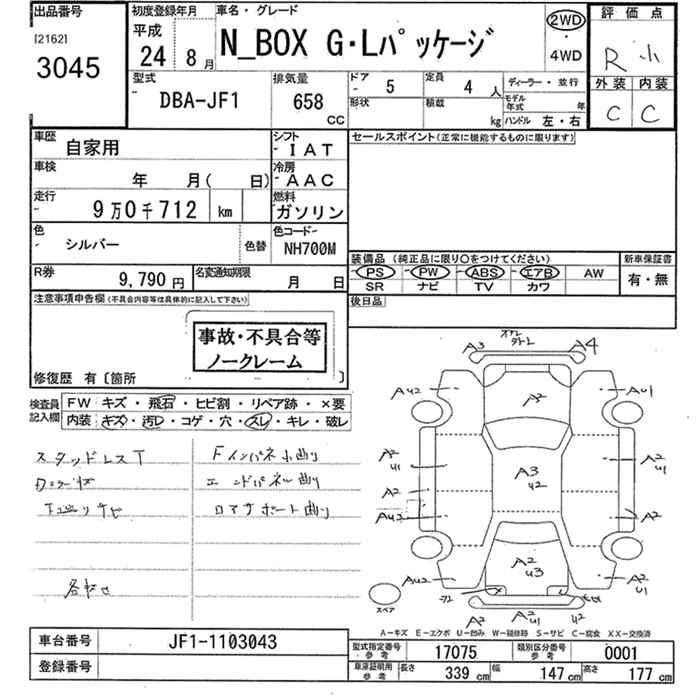 出品番号
[2162]
3045
初度登録年月
平成
24年 8月
車名・グレード
N_BOX G・Lパッケージ
2WD
・
4WD
評価点
R 小
外装 内装
C C
型式
DBA-JF1
排気量
658
CC
ドア
5
定員
4 人
形状
積載
kg
ディーラー・並行
モデル年式 年
ハンドル 左・右
車歴
自家用
シフト
IAT
車検
年 月( 日)
冷房
AAC
走行
9万0千712 km
燃料
ガソリン
色
シルバー
色替
色コード
NH700M
R券
9,790円
名変通知期限
月 日
セールスポイント(正常に機能するものに限ります)
装備品(純正品に限り○をつけてください)
PS PW ABS エアB AW
SR ナビ TV カワ
新車保証書
有・無
後日品
注意事項申告欄(不具合内容等は具体的に記入して下さい)
事故・不具合等
ノークレーム
修復歴 有〔箇所 〕
検査員
記入欄
FW キズ・飛石・ヒビ割・リペア跡・×要
内装 キズ・汚レ・コゲ・穴・スレ・キレ・破レ
スタッドレスT
Fインパネ小曲り
エンドパネル曲り
ロアサポート曲り
A3
A4
AU2
A2
AU1
A2
U1
A3
U2
A2
U1
A2
AU2
A2
AU2
A2
U3
A2
U1
A2
AU1
U2
スペア
A－キズ E－エクボ U－凹み W－補修跡 S－サビ C－腐食 XX－交換済
車台番号
JF1-1103043
登録番号
型式指定番号
参考
17075
類別区分番号
参考
0001
車庫証明用
参考
長さ
339 cm
幅
147 cm
高さ
177 cm